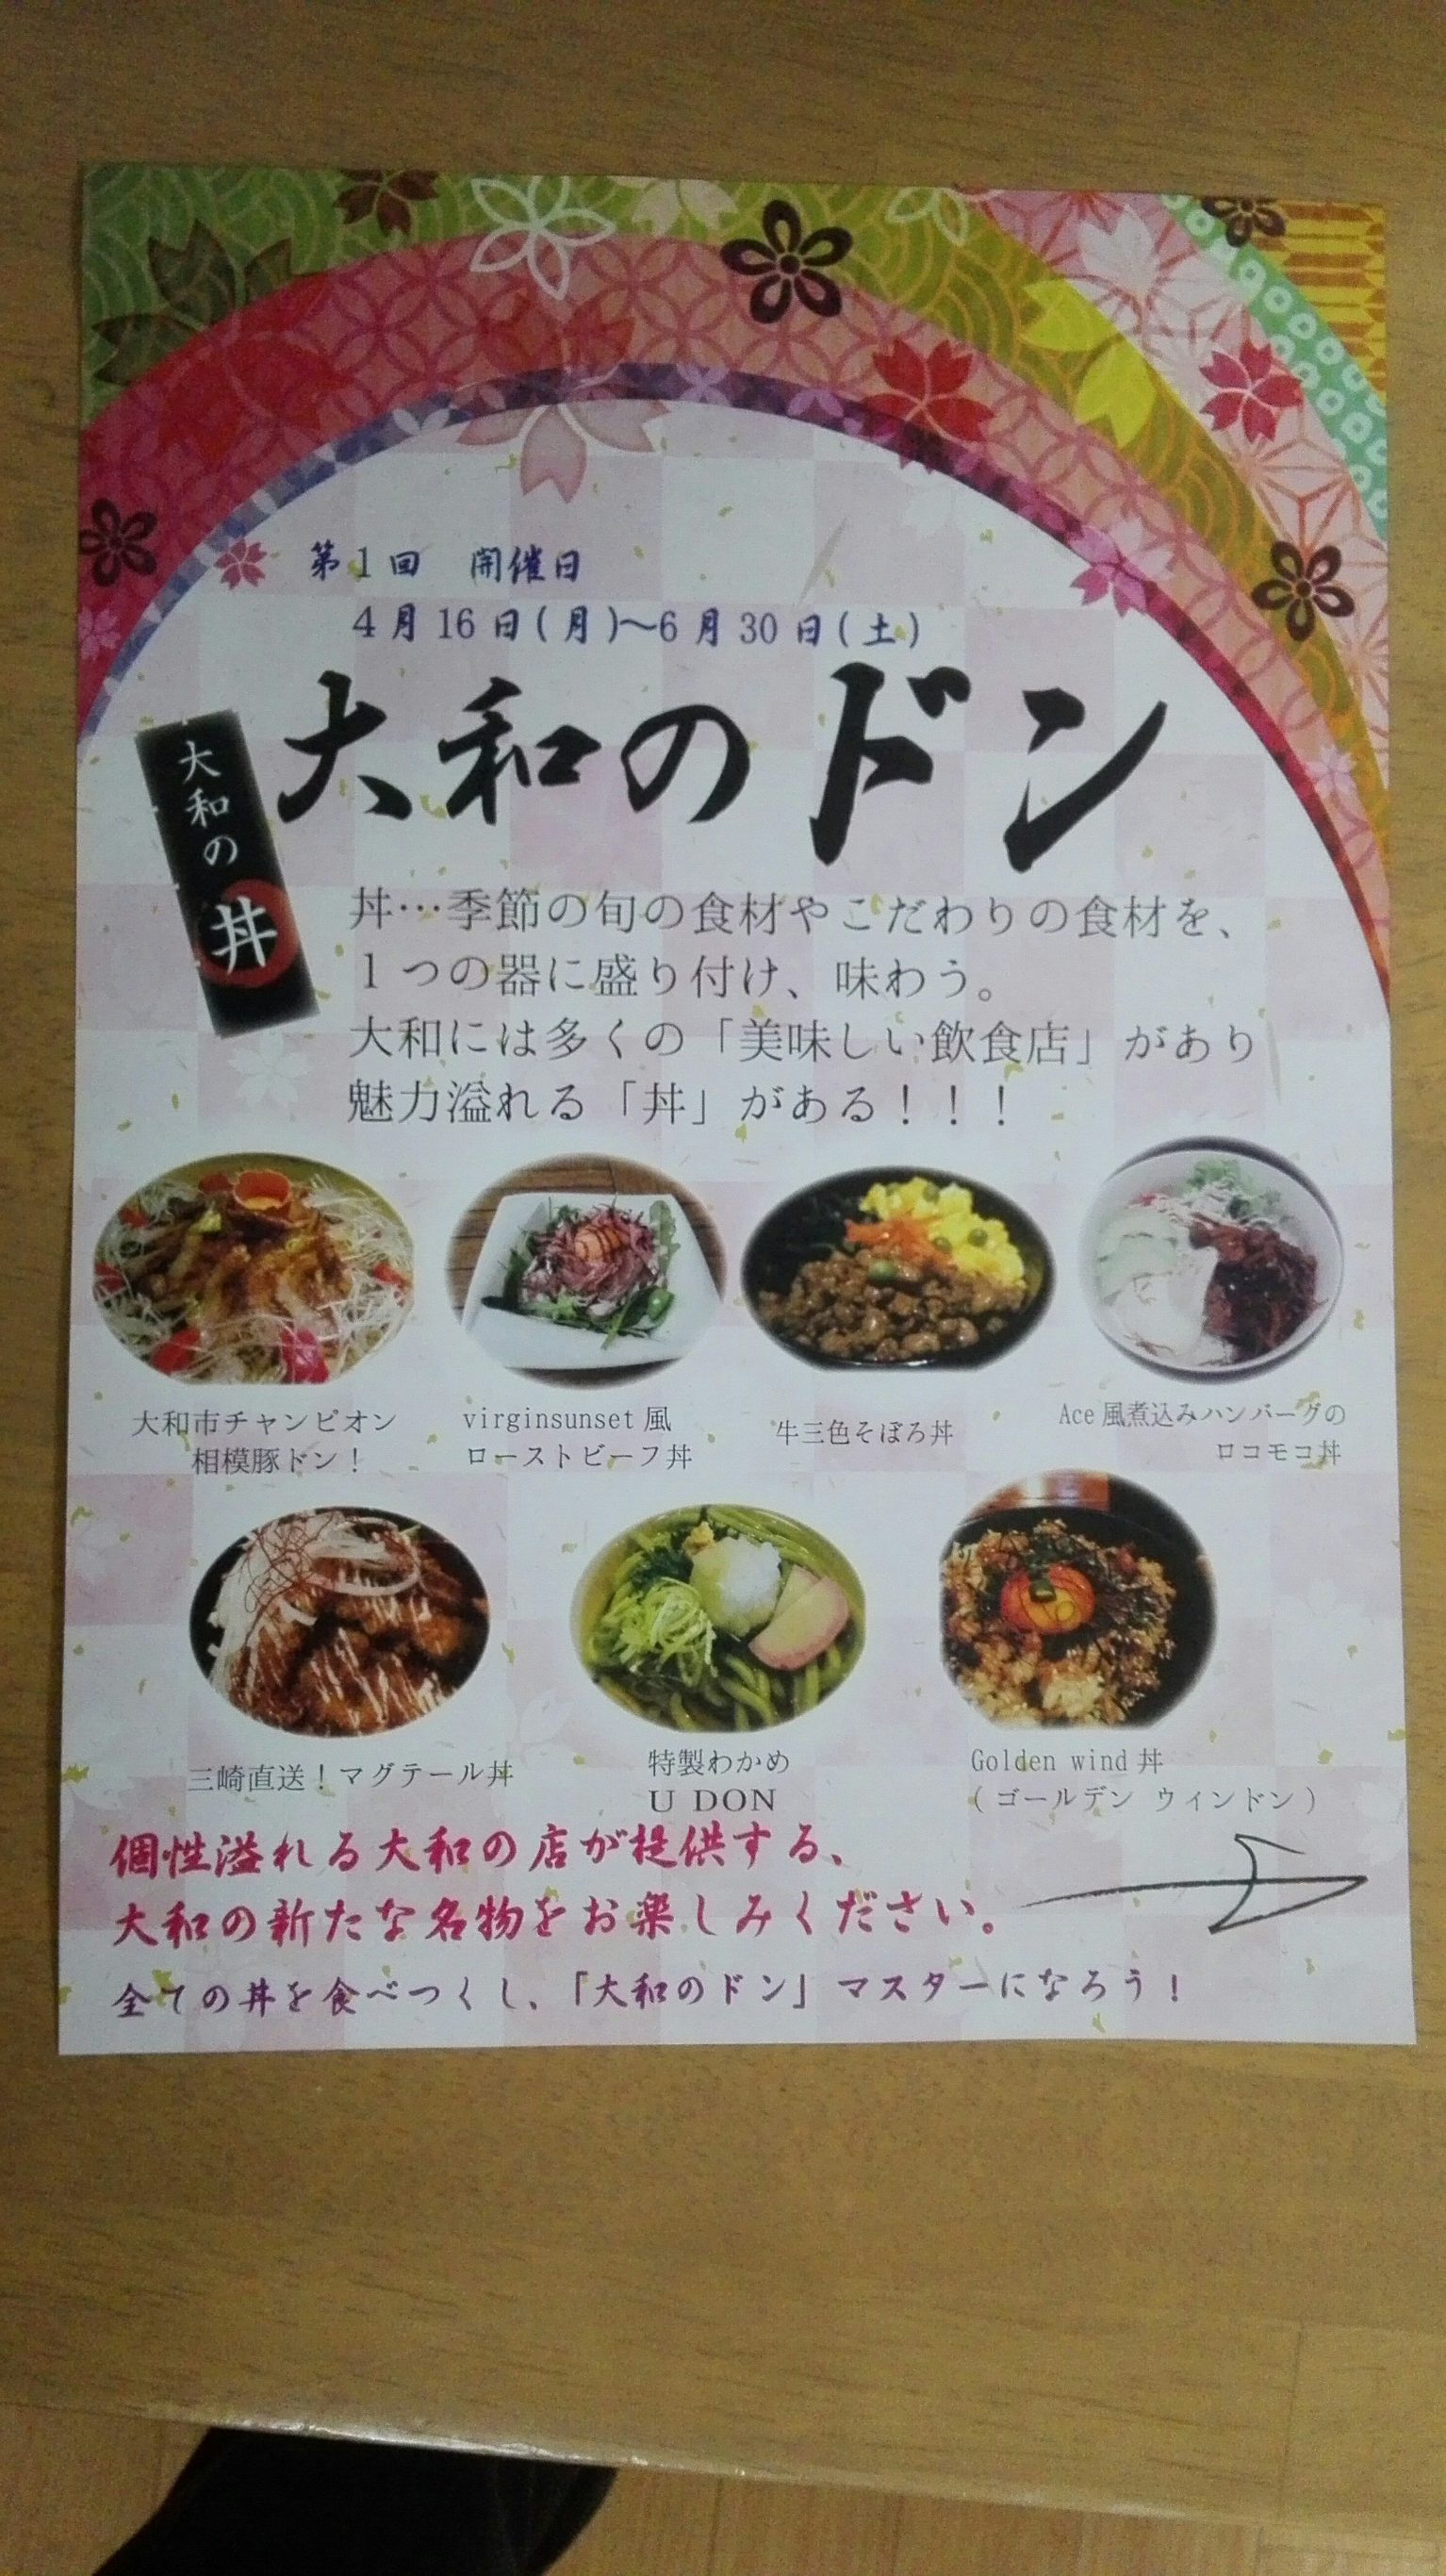 第1回　開催日
4月16日(月)～6月30日(土)
大和のドン
大和の丼
丼…季節の旬の食材やこだわりの食材を、
1つの器に盛り付け、味わう。
大和には多くの「美味しい飲食店」があり
魅力溢れる「丼」がある！！！
大和市チャンピオン
相模豚ドン！
virginsunset風
ローストビーフ丼
牛三色そぼろ丼
Ace風煮込みハンバーグの
ロコモコ丼
三崎直送！マグテール丼
特製わかめ
U DON
Golden wind丼
(ゴールデン ウィンドン)
個性溢れる大和の店が提供する、
大和の新たな名物をお楽しみください。
全ての丼を食べつくし、「大和のドン」マスターになろう！